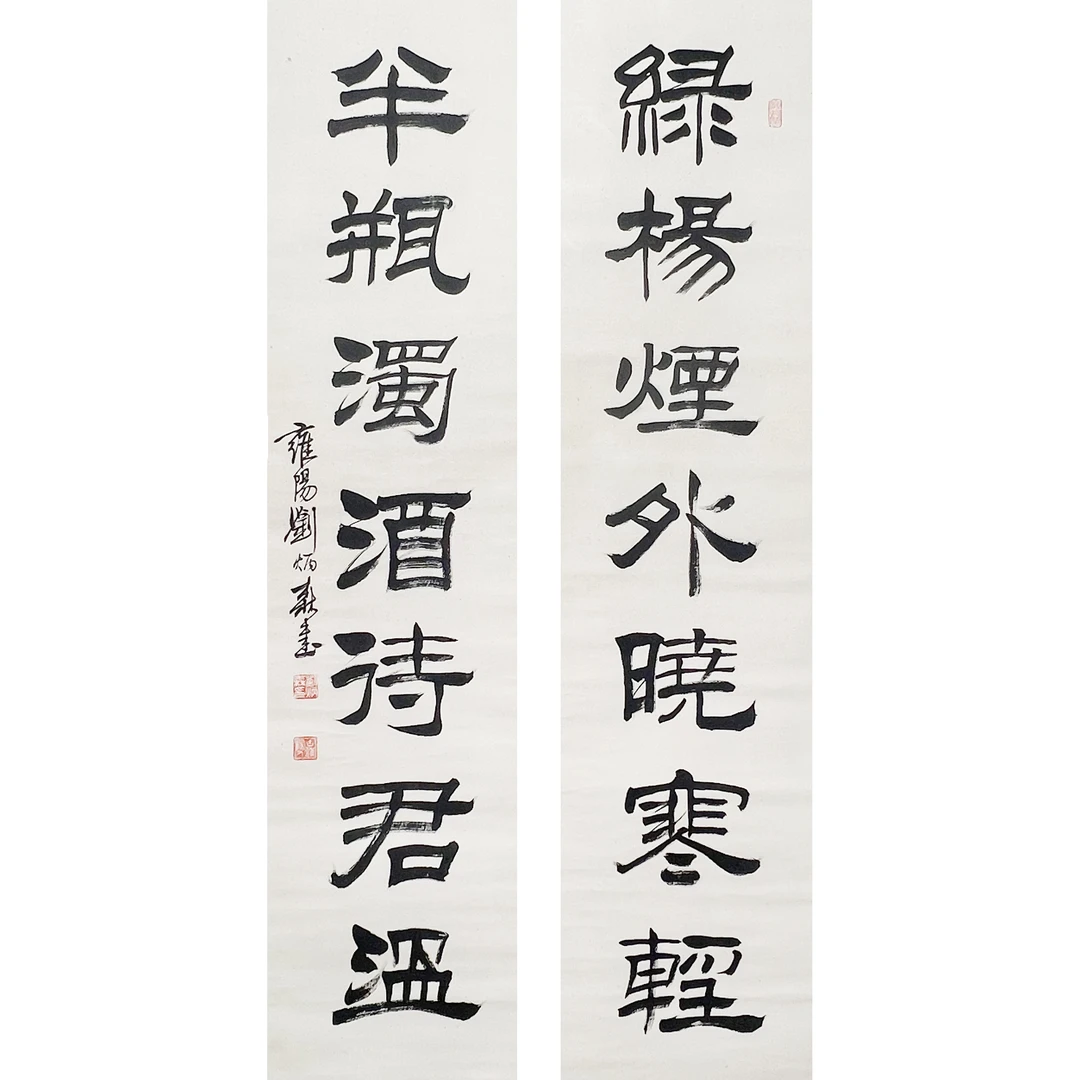 綠楊煙外曉寒輕
半瓶濁酒待君溫
雍陽劉炳森書